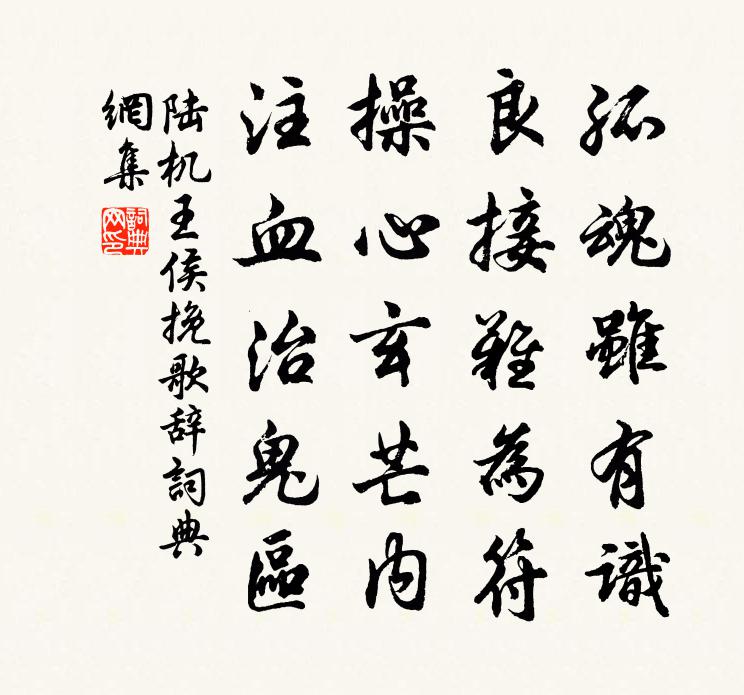 孤魂雖有識
良接難為符
操心玄芒内
注血治鬼區
陆机王侯挽歌辞詞典
網集
詞典
网印